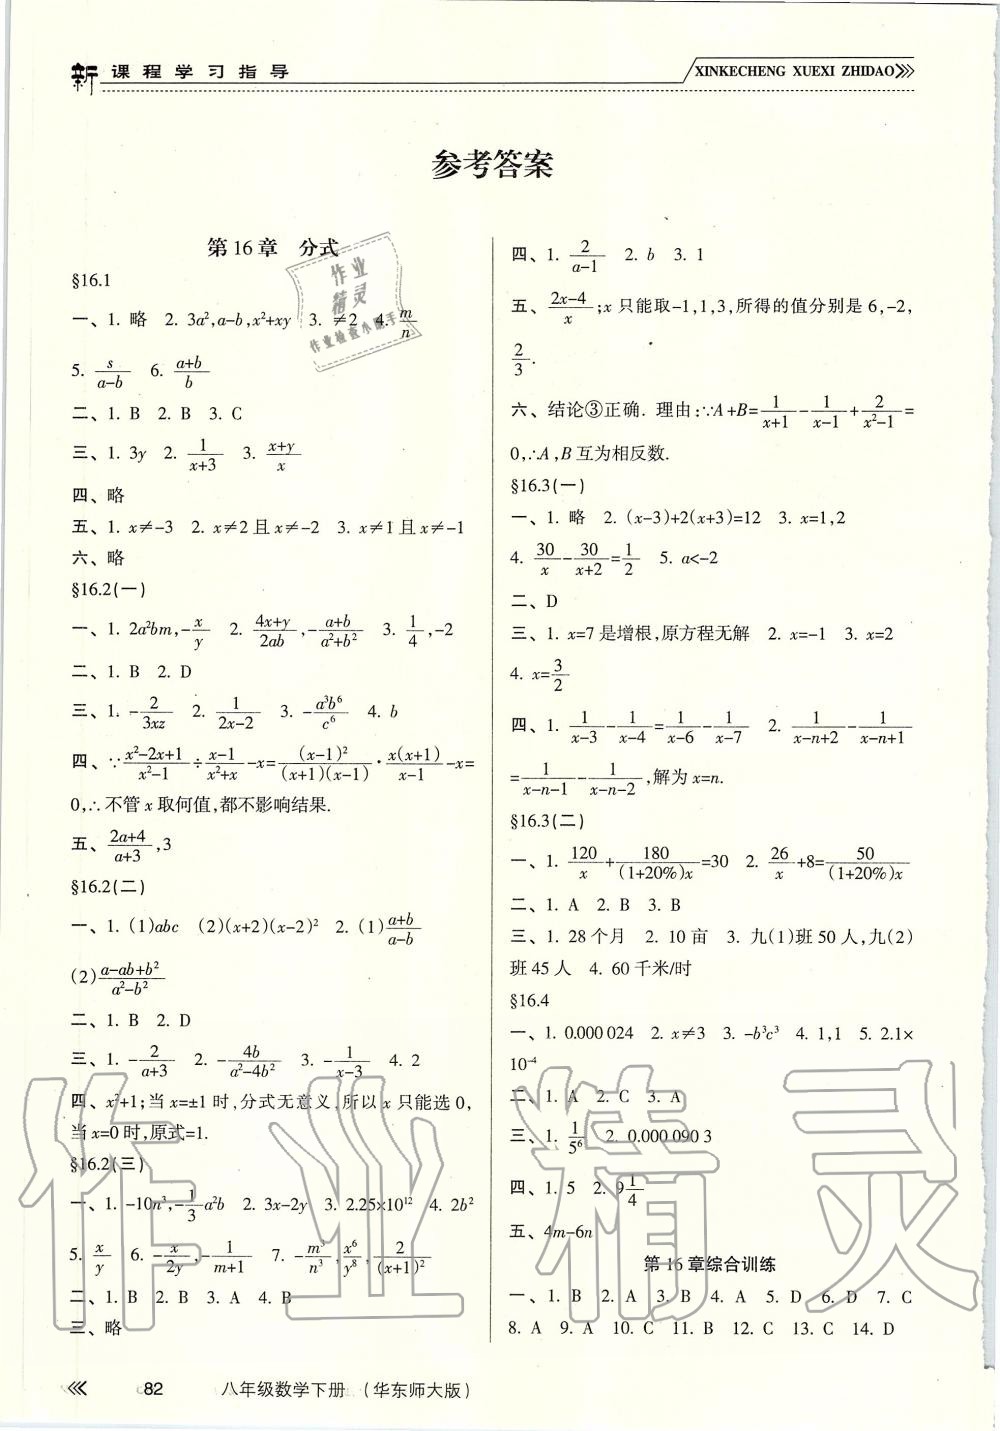 新课程学习指导
XINKECHENG XUEXI ZHIDAO
参考答案
第 16 章 分式
§16.1
一、1. 略 2. 3a²,a-b,x²+xy 3. ≠2 4. m/n
5. s/(a-b) 6. (a+b)/b
二、1. B 2. B 3. C
三、1. 3y 2. 1/(x+3) 3. (x+y)/x
四、略
五、1. x≠-3 2. x≠2 且 x≠-2 3. x≠1 且 x≠-1
六、略
§16.2(一)
一、1. 2a²bm,-x/y 2. (4x+y)/2ab,-(a+b)/(a²+b²) 3. 1/4,-2
二、1. B 2. D
三、1. -2/3xz 2. 1/(2x-2) 3. -a³b⁶/c⁶ 4. b
四、∵(x²-2x+1)/(x²-1)÷(x-1)/(x²+x)-x=(x-1)²/(x+1)(x-1)·x(x+1)/(x-1)-x=
0,∴不管 x 取何值,都不影响结果.
五、(2a+4)/(a+3),3
§16.2(二)
一、1. (1)abc (2)(x+2)(x-2)² 2. (1)(a+b)/(a-b)
(2)(a-ab+b²)/(a²-b²)
二、1. B 2. D
三、1. -2/(a+3) 2. -4b/(a²-4b²) 3. -1/(x-3) 4. 2
四、x²+1;当 x=±1 时,分式无意义,所以 x 只能选 0,
当 x=0 时,原式=1.
§16.2(三)
一、1. -10n³,-1/3 a²b 2. 3x-2y 3. 2.25×10¹² 4. 2b²
5. x/y 6. -x/2y,-1/(m+1) 7. -m³/n³,x⁶/y⁸,2/(x+1)²
二、1. B 2. B 3. A 4. B
三、略
四、1. 2/(a-1) 2. b 3. 1
五、(2x-4)/x;x 只能取-1,1,3,所得的值分别是 6,-2,
2/3.
六、结论③正确. 理由:∵A+B=1/(x+1)-1/(x-1)+2/(x²-1)=
0,∴A,B 互为相反数.
§16.3(一)
一、1. 略 2. (x-3)+2(x+3)=12 3. x=1,2
4. 30/x-30/(x+2)=1/2 5. a<-2
二、D
三、1. x=7 是增根,原方程无解 2. x=-1 3. x=2
4. x=3/2
四、1. 1/(x-3)-1/(x-4)=1/(x-6)-1/(x-7) 2. 1/(x-n+2)-1/(x-n+1)
=1/(x-n-1)-1/(x-n-2),解为 x=n.
§16.3(二)
一、1. 120/x+180/(1+20%)x=30 2. 26/x+8=50/(1+20%)x
二、1. A 2. B 3. B
三、1. 28 个月 2. 10 亩 3. 九(1)班 50 人,九(2)
班 45 人 4. 60 千米/时
§16.4
一、1. 0.000 024 2. x≠3 3. -b³c³ 4. 1,1 5. 2.1×
10⁻⁴
二、1. A 2. C 3. A
三、1. 1/5⁶ 2. 0.000 090 3
四、1. 5 2. 9 1/4
五、4m-6n
第 16 章综合训练
一、1. B 2. A 3. B 4. A 5. D 6. D 7. C
8. A 9. A 10. C 11. B 12. C 13. C 14. D
82 八年级数学下册 (华东师大版)
作业
精灵
作业检查小帮手
作业精灵